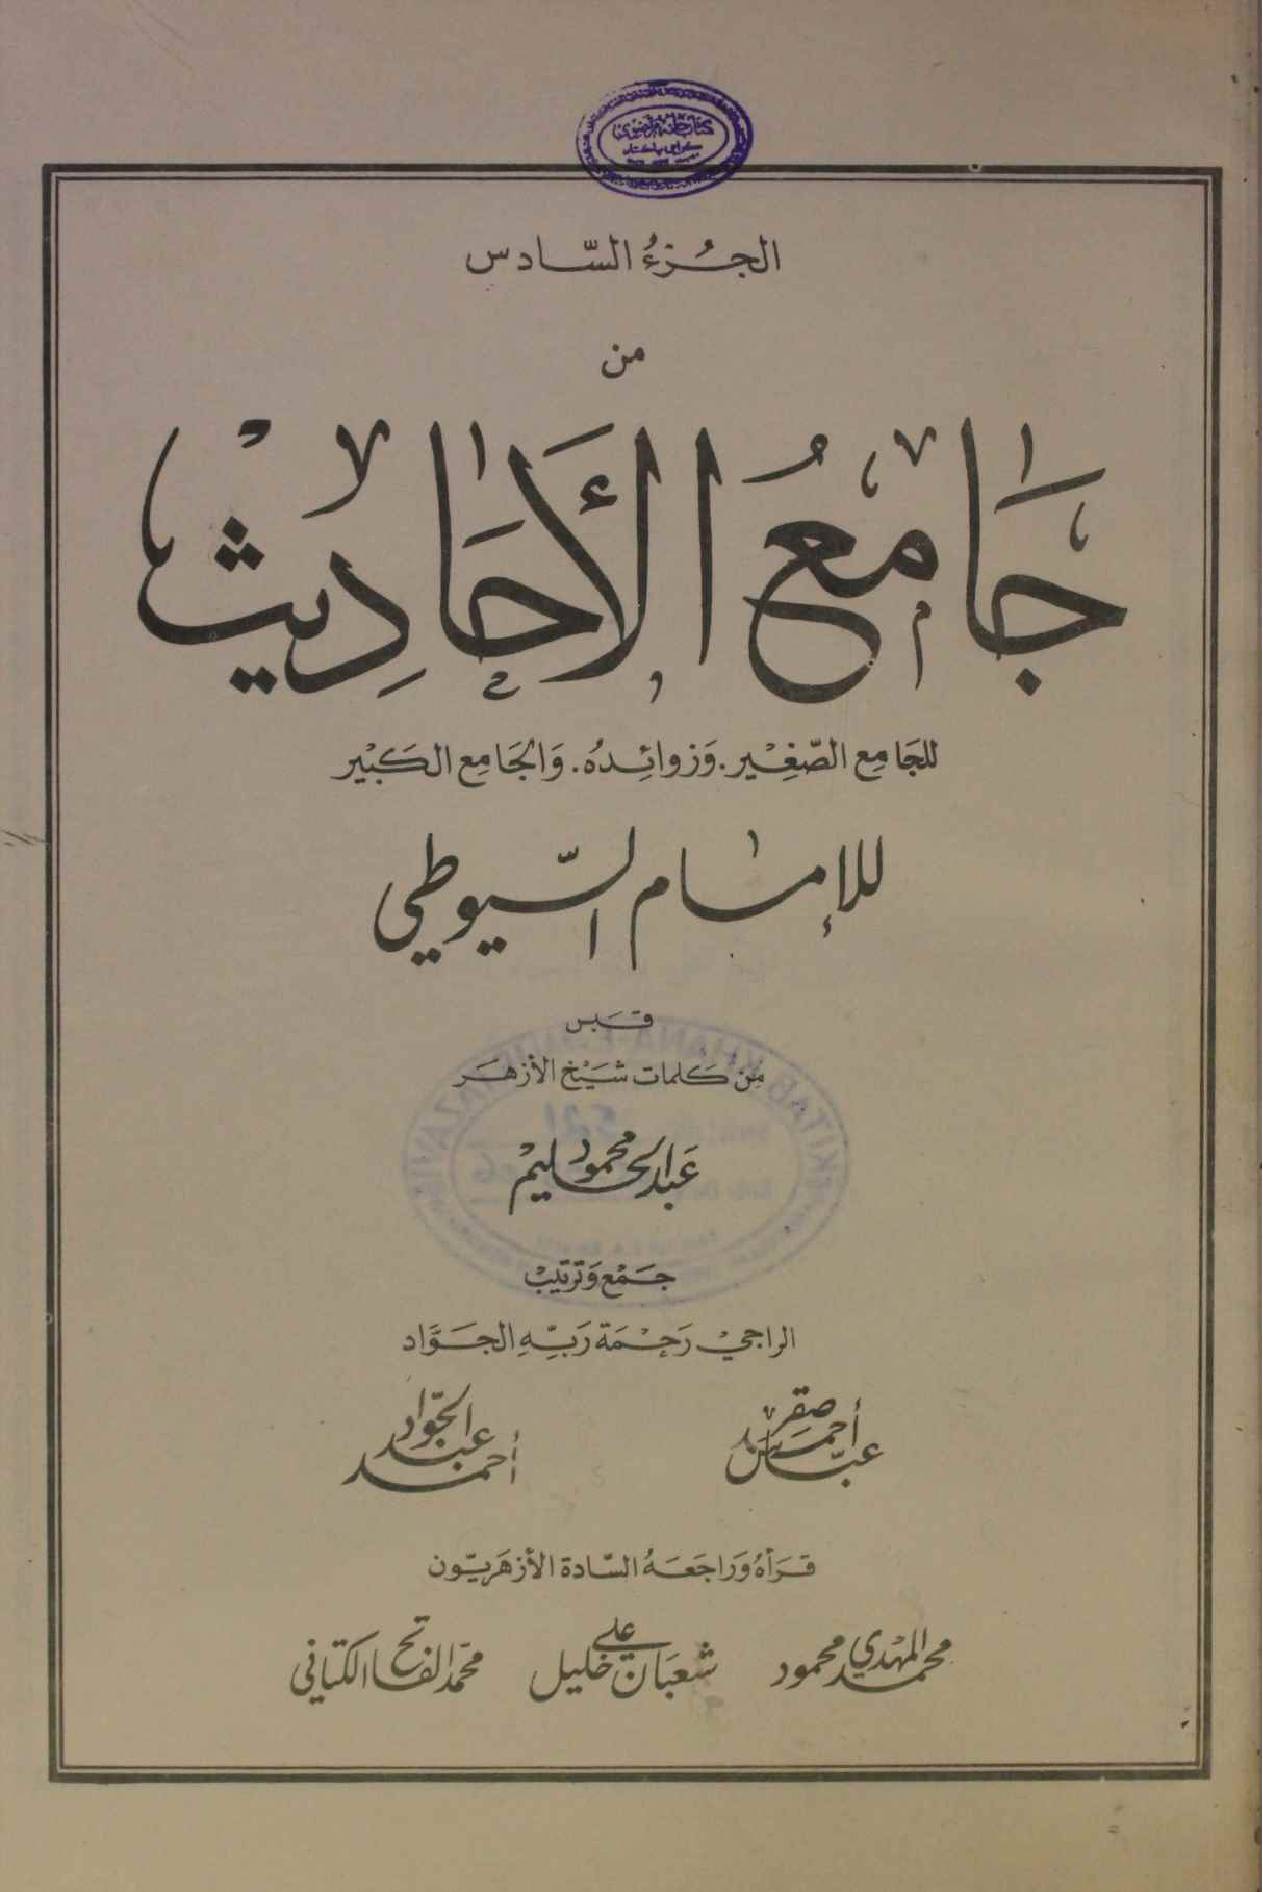 الجُزءُ السّادس
من
جَامِعُ الأَحَادِيْث
للجَامِع الصّغِيْر. وَزوائِدهُ. وَالجَامِع الكَبْيْر
للإمام السّيوطي
قبس
مِن كلمات شيْخ الأزهَر
عَبد الحليم محمود
جَمْع وَترتيْب
الراجيْ رَحْمَة رَبّهِ الجَوَّاد
عبّاس أحمد صقر
أحمد عبد الجوّاد
قرَأهُ وَرَاجَعَهُ السّادة الأزهَريّون
محمد المهدي محمود
شعبَان علي خليل
محمّد الفاتح الكتاني